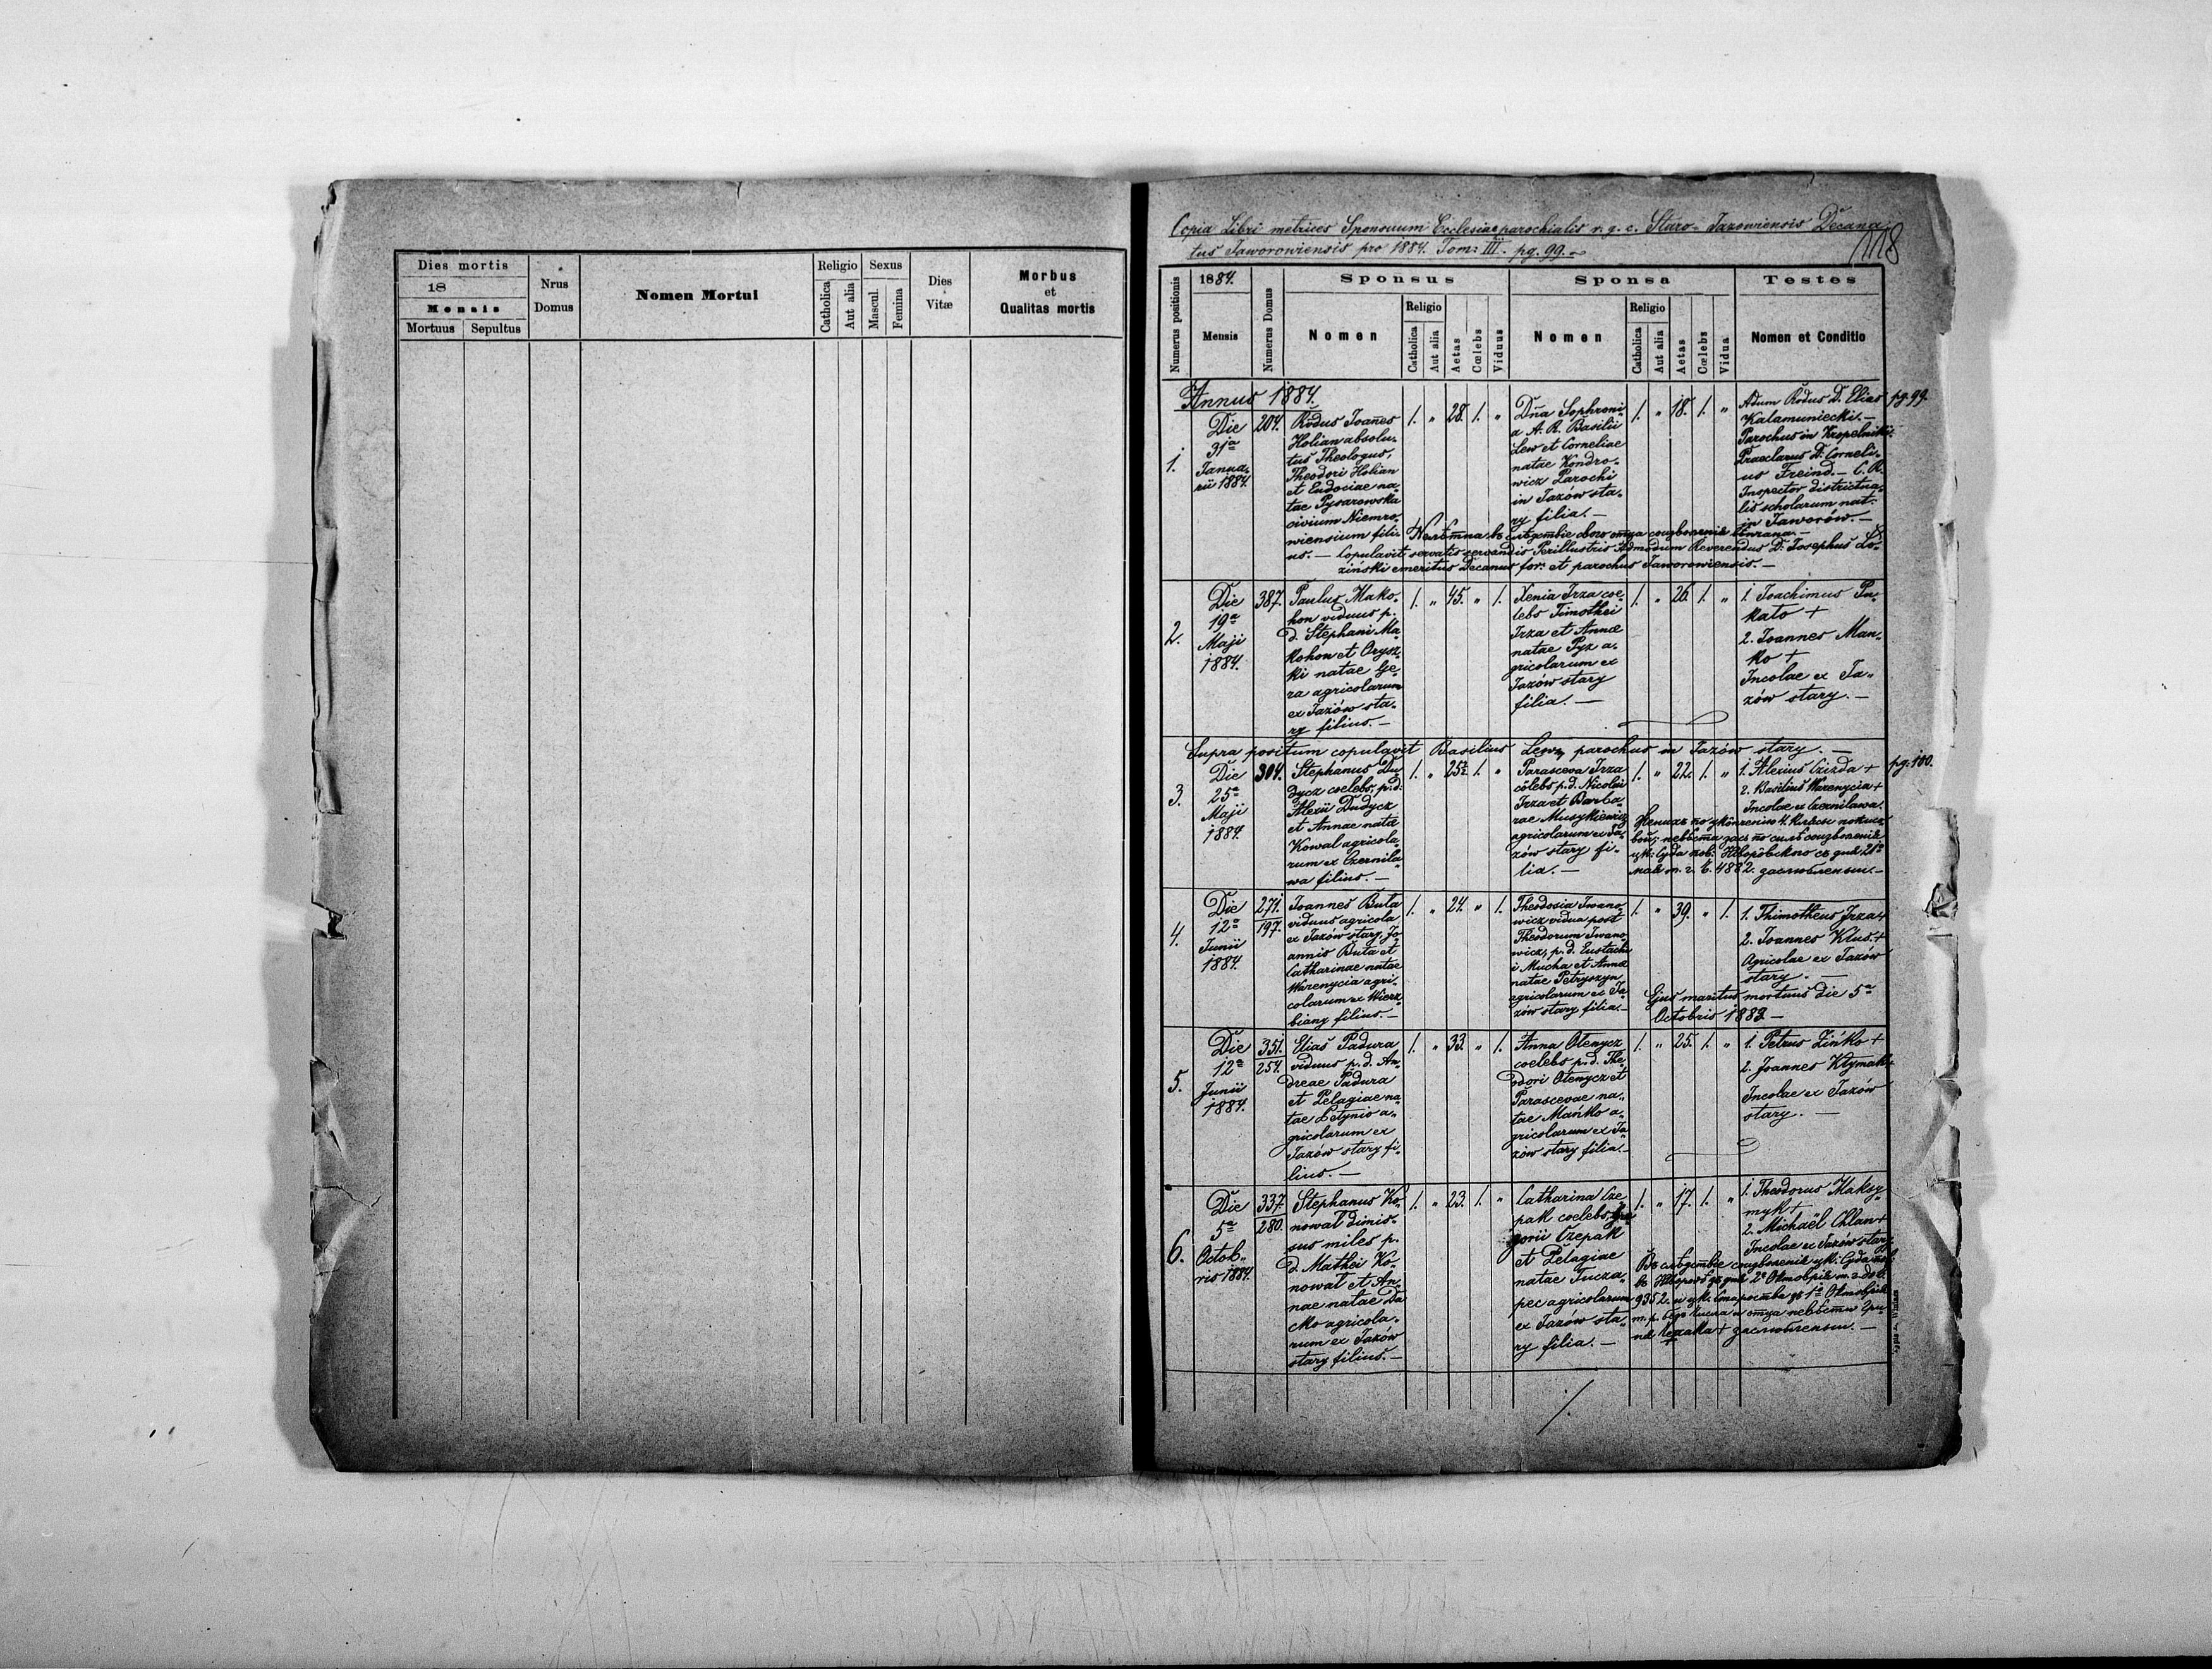 Dies mortis
18
Mensis
Mortuus Sepultus
Nrus
Domus
Nomen Mortui
Religio
Catholica
Aut alia
Sexus
Mascul.
Femina
Dies
Vitæ
Morbus
et
Qualitas mortis
Copia Libri metrices Sponsorum Ecclesiae parochialis r. g. c. Staro-Jazowiensis Decana-
tus Jaworowiensis pro 1884. Tom: III. pg. 99.
118
Numerus positionis
1884.
Mensis
Numerus Domus
Sponsus
Nomen
Religio
Catholica
Aut alia
Aetas
Cœlebs
Viduus
Sponsa
Nomen
Religio
Catholica
Aut alia
Aetas
Cœlebs
Vidua
Testes
Nomen et Conditio
Annus 1884.
1.
Die
31a
Janua-
rii 1884.
204.
Rdus Joannes
Holian absolu-
tus Theologus,
Theodori Holian
et Eudociae na-
tae Pysarowska
civium Niemro-
wiensium fili-
us. —
1. " 28. 1. "
Dna Sophroni-
a A. R. Basilii
Lew et Corneliae
natae Kondro-
wicz Parochi
in Jazów sta-
ry filia. —
1. " 18. 1. "
Adum Rdus D. Elias
Kalamuniecki. —
Parochus in
Praeclarus D. Corneli-
us Freind. — C. R.
Inspector districtua-
lis scholarum nat.
in Jaworów. —
pg. 99.
Copulavit servatis servandis Perillustris Admodum Reverendus D. Josephus Lo-
ziński emeritus Decanus for: et parochus Jaworowiensis. —
2.
Die
19a
Maji
1884.
387.
Paulus Mako-
hon viduus p.
d. Stephani Ma-
kohon et Orysz-
ki natae Ge-
ra agricolarum
ex Jazów sta-
ry filius. —
1. " 45. " 1.
Xenia Irza coe-
lebs Timothei
Irza et Annae
natae Pyz a-
gricolarum ex
Jazów stary
filia. —
1. " 26. 1. "
1. Joachimus Pu-
kato +
2. Joannes Man-
ko +
Incolae ex Ja-
zów stary. —
Supra positum copulavit Basilius Lew, parochus in Jazów stary. —
3.
Die
25a
Maji
1884.
304.
Stephanus Du-
dycz coelebs, p. d.
Alexii Dudycz
et Annae natae
Kowal agricola-
rum ex Czernila-
wa filius. —
1. " 25 1. "
Parasceva Irza
cölebs p. d. Nicolai
Irza et Barba-
rae Musykiewicz
agricolarum ex Ja-
zów stary fi-
lia. —
1. " 22. 1. "
1. Alexius Czizda +
2. Basilius Warenycia +
Incolae ex Czernilawa.
pg. 100.
4.
Die
12a
Junii
1884.
271.
197.
Joannes Buta
viduus agricola
ex Jazów stary, Jo-
annis Buta et
Catharinae natae
Warenycia agri-
colarum ex Wierz-
biany filius. —
1. " 24. " 1.
Theodosia Iwano-
wicz vidua post
Theodorum Iwano-
wicz, p. d. Eustachi-
i Mucha et Annae
natae Petryszyn
agricolarum ex Ja-
zów stary filia. —
1. " 39. " 1.
1. Thimotheus Irza +
2. Joannes Klus. +
Agricolae ex Jazów
stary. —
Ejus maritus mortuus die 5a
Octobris 1883 —
5.
Die
12a
Junii
1884.
351.
254.
Elias Padura
viduus p. d. An-
dreae Padura
et Pelagiae na-
tae Letynio a-
gricolarum ex
Jazów stary fi-
lius. —
1. " 33. " 1.
Anna Olenycz
coelebs p. d. The-
odori Olenycz et
Parascevae na-
tae Mańko a-
gricolarum ex Ja-
zów stary filia. —
1. " 25. 1. "
1. Petrus Zińko +
2. Joannes Klymak +
Incolae ex Jazów
stary. —
6.
Die
5a
Octob-
ris 1884.
337.
280.
Stephanus Ko-
nowal dimis-
sus miles p.
d. Mathei Ko-
nowal et An-
nae natae Da-
cko agricola-
rum ex Jazów
stary filius. —
1. " 23. 1. "
Catharina Cze-
pak coelebs, Gre-
gorii Czepak
et Pelagiae
natae Tucza-
pec agricolarum
ex Jazów sta-
ry filia. —
1. " 17. 1. "
1. Theodorus Maksy-
myk +
2. Michaël Chlan +
Incolae ex Jazów stary